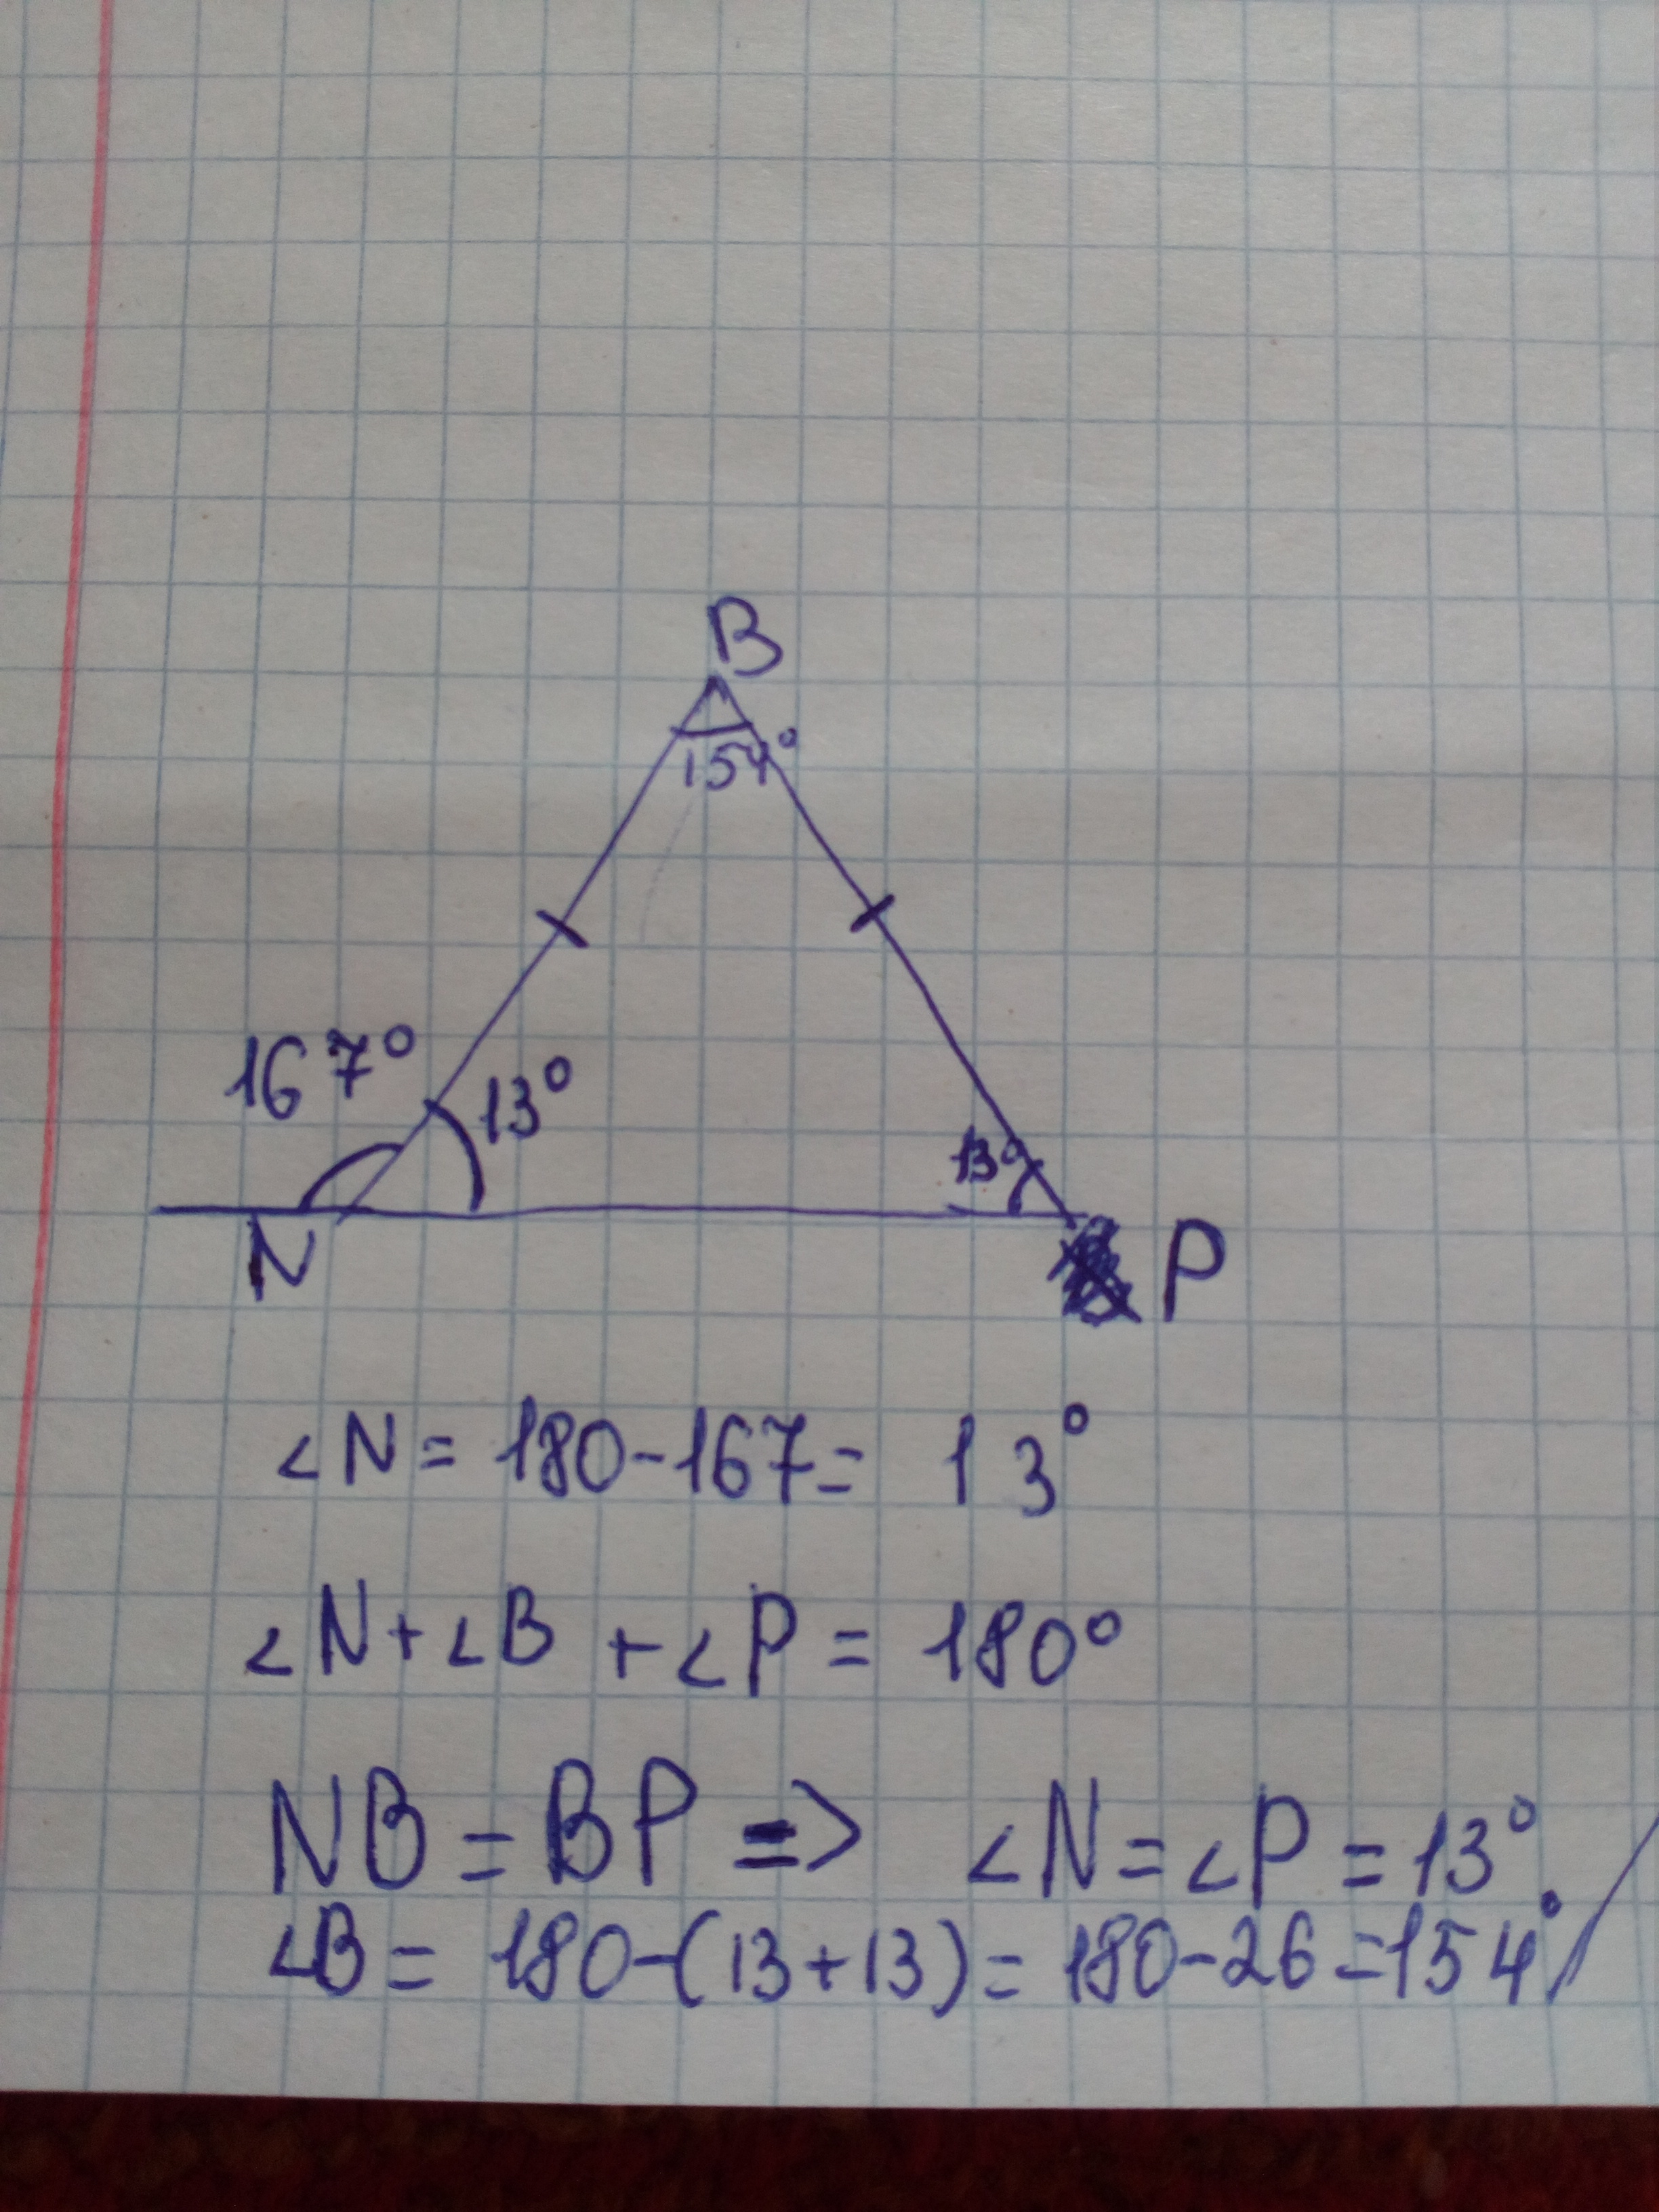 B
154°
167°
13°
13°
N
P
∠N = 180-167= 13°
∠N+∠B +∠P = 180°
NB = BP => ∠N=∠P = 13°
∠B = 180-(13+13)= 180-26=154°